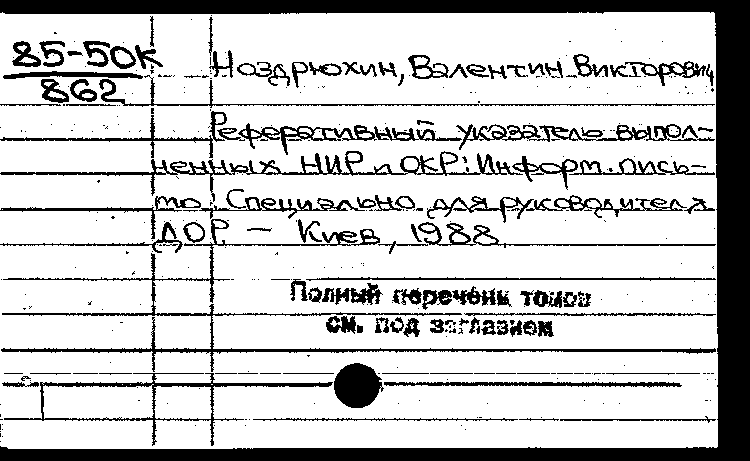 85-50К
862
Ноздрюхин, Валентин Викторович
Реферативный указатель выпол-
ненных НИР и ОКР: Информ. пись-
мо: Специально для руководителя
ДОР. — Киев, 1988
Полный перечень томов
см. под заглавием